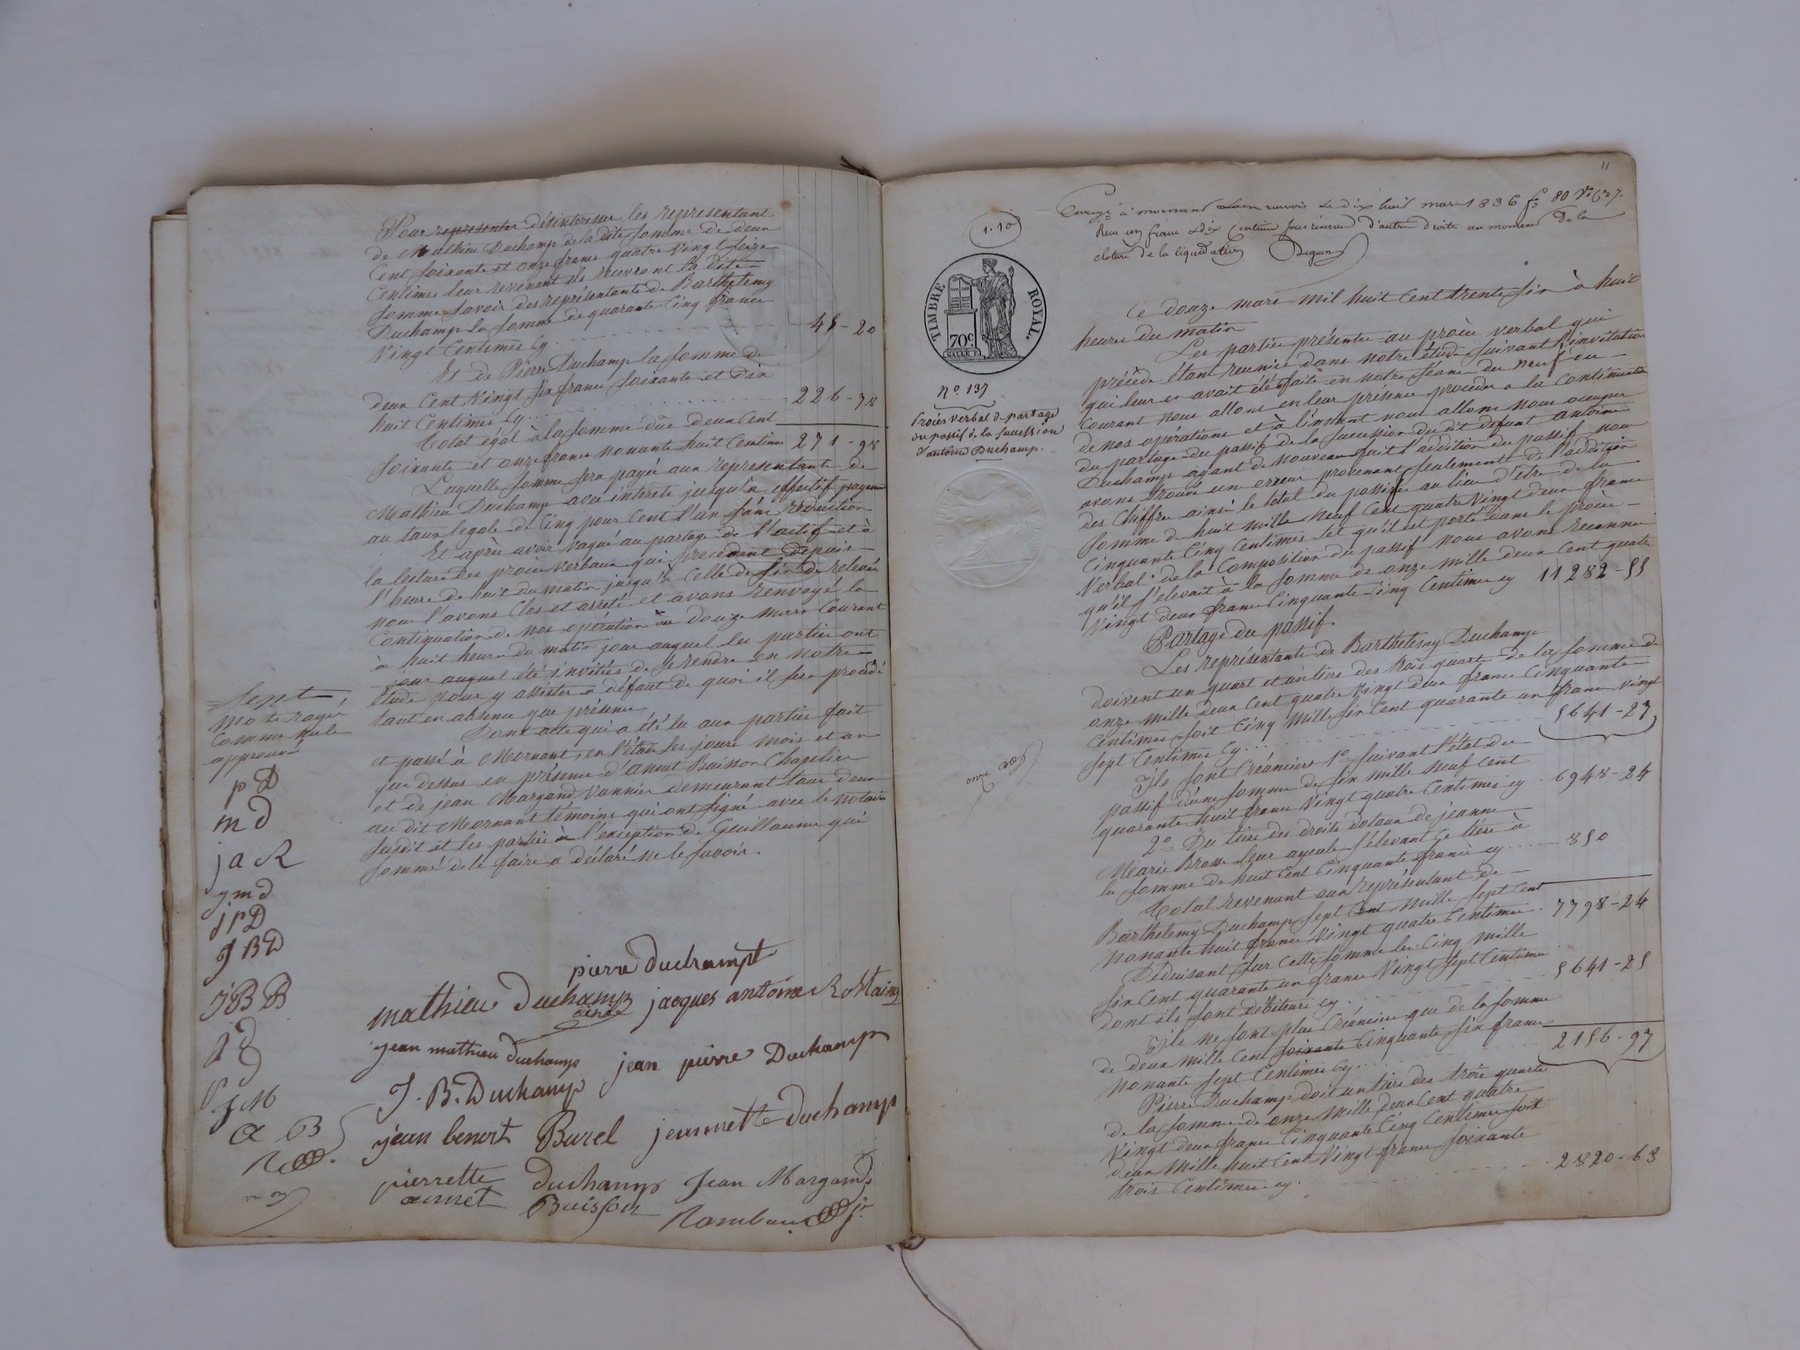 Pour representer désinteresser les representant
de Mathieu Duchamp de la dite somme de deux
Cent soixante et onze francs quatre vingt seize
Centimes leur revenant ils recevront la dite
somme savoir des représentants de Barthelemy
Duchamp la somme de quarante cinq francs
Vingt Centimes Cy 45-20
Et de Pierre Duchamp la somme de
deux Cent Vingt six francs soixante et dix
huit Centimes Cy 226-78
Total égal à la somme due deux Cent
soixante et onze francs nonante huit Centimes 271-98
Laquelle somme sera payée aux representants de
Mathieu Duchamp avec interets jusqu'à effectif payement
au taux legale de Cinq pour Cent l'an sans réduction
Et après avoir vaqué au partage de l'actif et à
la lecture des procès verbaux qui précèdent depuis
l'heure de huit du matin jusqu'à Celle de six de relevée
nous l'avons Clos et arreté et avons renvoyé la
Continuation de nos opération au douze mars Courant
à huit heures du matin jour auquel les parties ont
jour auquel été invitées de se rendre en notre
étude pour y assister à défaut de quoi il sera procédé
tant en absence que présence
Dont acte qui a été lu aux parties fait
et passé à Mornant, en l'étude les jours mois et an
que dessus en présence d'Aimé Buisson Chapelier
et de Jean Margand Vannier demeurant tous deux
au dit Mornant témoins qui ont signé avec le notaire
susdit et les parties à l'exception de Guillaume qui
sommé de le faire a déclaré ne le savoir.
Sept
mots rayés
Comme nuls
approuvé
p D
m d
j a R
j m d
j P D
J B D
J B B
J D
P
J M
a B
pierre duchampt
mathieu Duchamp jacques antoine Rostaing
ainé
jean mathieu Duchamp jean pierre Duchamp
J. B. Duchamp
jean benoit Burel jeannette duchamp
pierrette duchamp Jean Margand
aimet Buisson
11
1.10
Enregé à mornant le dix huit mars 1836 f° 80 V°
Reçu un franc dix Centimes sous réserve d'autres droits au moment de la
cloture de la liquidation
TIMBRE ROYAL.
70c
N° 137
Procès verbal de partage
du passif de la succession
d'antoine Duchamp.
Ce douze mars mil huit Cent trente six à huit
heures du matin
Les parties présentes au procès verbal qui
précède étant reunies dans notre étude suivant l'invitation
qui leur en avait été faite en notre séance du neuf du
Courant nous allons en leur présence proceder à la Continuation
de nos opérations et à l'instant nous allons nous occuper
du partage du passif de la succession du dit defunt antoine
Duchamp ayant de nouveau fait l'addition du passif nous
avons trouvé un erreur provenant seulement de l'addition
des Chiffres ainsi le total du passif au lieu d'être de la
somme de huit mille neuf Cent quatre Vingt deux francs
Cinquante Cinq Centimes tel qu'il est porté dans le procès-
Verbal de la Composition du passif nous avons reconnu
qu'il s'élevait à la somme de onze mille deux Cent quatre
Vingt deux francs Cinquante cinq Centimes cy 11282-55
Partage du passif.
Les représentants de Barthelemy Duchamp
doivent un quart et un tiers des trois quarts de la somme de
onze mille deux Cent quatre Vingt deux francs Cinquante
Centimes soit Cinq Mille six Cent quarante un francs Vingt
sept Centimes Cy 5641-27
Ils sont Créanciers 1° suivant l'état du
passif d'une somme de six mille neuf Cent
quarante huit francs Vingt quatre Centimes cy 6948-24
2° Du tiers des droits dotaux de jeanne
Marie Brosse leur ayeule s'élevant ce tiers à
la somme de huit Cent Cinquante francs cy 850
Total revenant aux représentant de
Barthelemy Duchamp sept Cent Mille sept Cent
Nonante huit francs Vingt quatre Centimes 7798-24
Déduisant sur cette somme les Cinq mille
six Cent quarante un francs Vingt sept Centimes
dont ils sont débiteurs cy 5641-25
Ils ne sont plus Créanciers que de la somme
de deux mille Cent soixante Cinquante six francs
Nonante sept Centimes Cy 2156-97
Pierre Duchamp doit un tiers des trois quarts
de la somme de onze mille deux Cent quatre
Vingt deux francs Cinquante Cinq Centimes soit
deux Mille huit Cent Vingt francs soixante
trois Centimes cy 2820-63